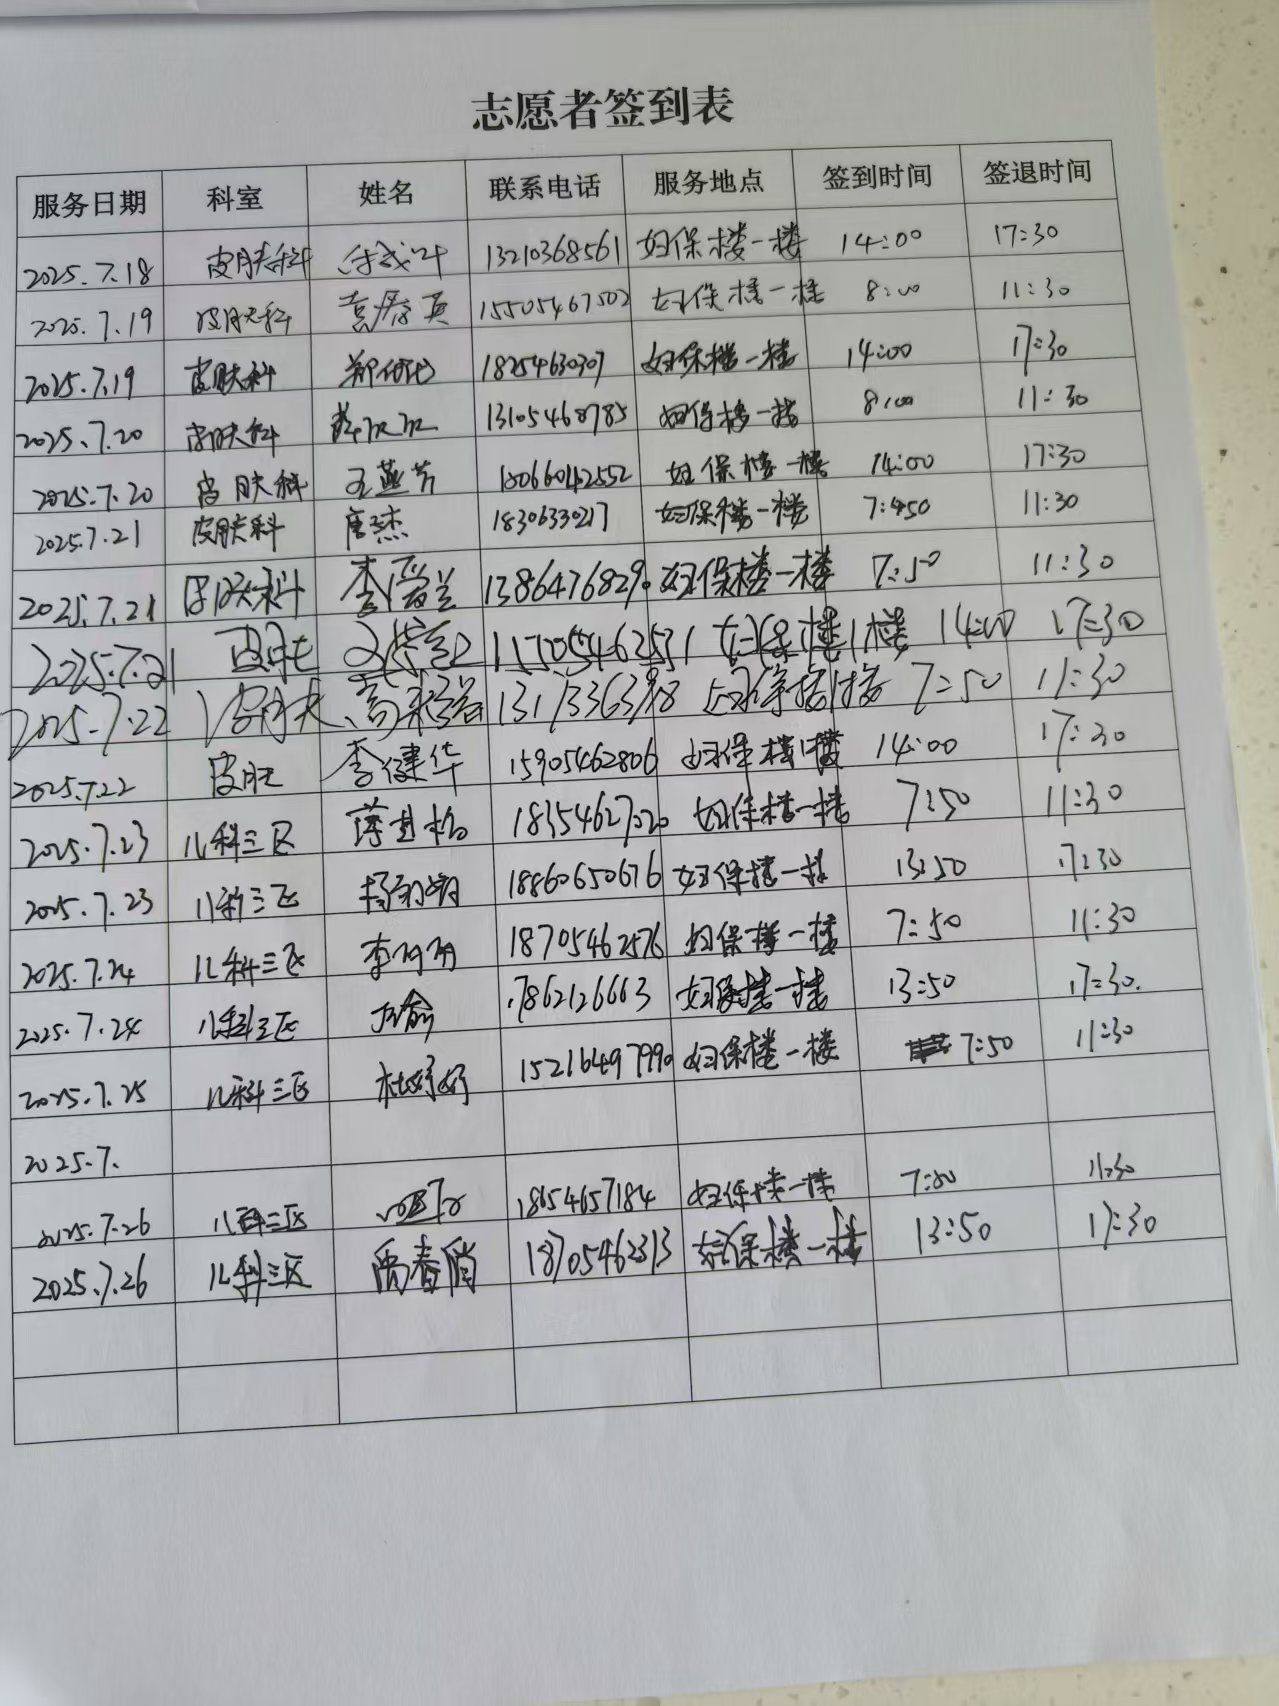 志愿者签到表
服务日期 科室 姓名 联系电话 服务地点 签到时间 签退时间
2025.7.18 皮肤科 13210368561 妇保楼一楼 14:00 17:30
2025.7.19 皮肤科 15505467502 妇保楼一楼 8:00 11:30
2025.7.19 皮肤科 18254630307 妇保楼一楼 14:00 17:30
2025.7.20 皮肤科 13105468785 妇保楼一楼 8:00 11:30
2025.7.20 皮肤科 王燕芳 18066042552 妇保楼一楼 14:00 17:30
2025.7.21 皮肤科 唐杰 18306330217 妇保楼一楼 7:450 11:30
2025.7.21 皮肤科 13864768290 妇保楼一楼 7:50 11:30
2025.7.21 皮肤 妇保楼1楼 14:00 17:30
2025.7.22 皮肤 妇保楼1楼 7:50 11:30
2025.7.22 皮肤 李健华 15905462806 妇保楼1楼 14:00 17:30
2025.7.23 儿科三区 妇保楼一楼 7:50 11:30
2025.7.23 儿科三区 18860650676 妇保楼一楼 13:50 17:30
2025.7.24 儿科三区 18705462576 妇保楼一楼 7:50 11:30
2025.7.24 儿科三区 17862126663 妇保楼一楼 13:50 17:30.
2025.7.25 儿科三区 杜好好 15216497990 妇保楼一楼 7:50 11:30
2025.7.
2025.7.26 儿科三区 18654657184 妇保楼一楼 11:30
2025.7.26 儿科三区 禹春俏 18705462313 妇保楼一楼 13:50 17:30